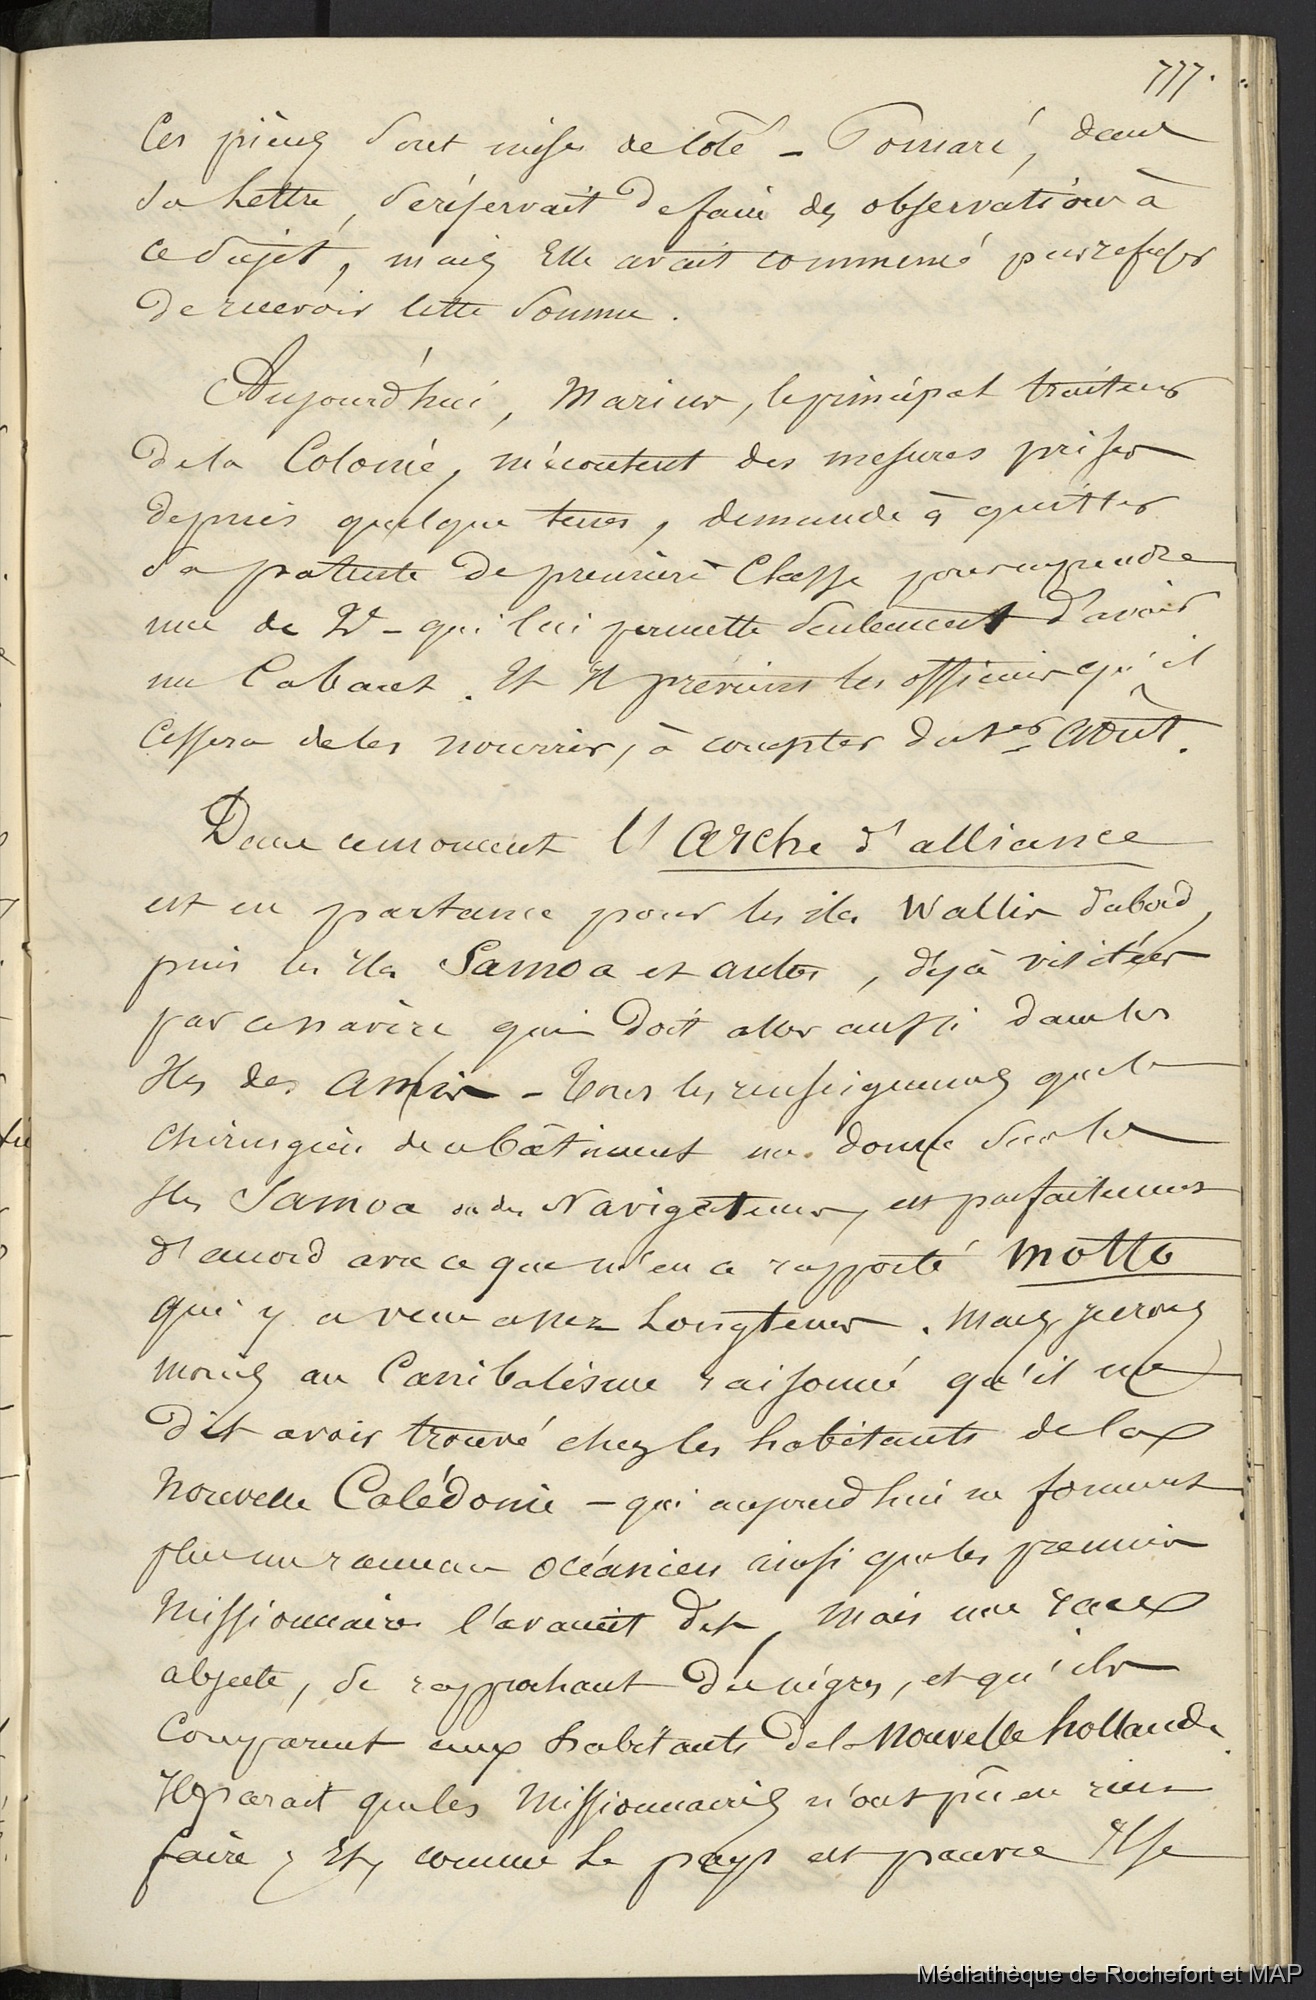 777.
Ces pièces sont mises de côté – Pomaré, dans
sa lettre, se réservait de faire des observations à
ce sujet, mais Elle avait commencé par refuser
de recevoir cette somme.
Aujourd'hui, Marius, le principal traiteur
de la Colonie, mécontent des mesures prises
depuis quelque tems, demande à quitter
sa patente de première Classe pour en prendre
une de 2de – qui lui permette seulement d'avoir
un Cabaret. Et Il prévient les officiers qu'il
cessera de les nourrir, à compter du 1er Août.
Dans ce moment l'Arche d'alliance
est en partance pour les îles Wallis d'abord,
puis les Iles Samoa et autres, déjà visitées
par ce navire qui doit aller aussi dans les
Iles des Amis – Tous les renseignemens que le
chirurgien de ce bâtiment me donne sur les
Iles Samoa ou des Navigateurs, est parfaitement
d'accord avec ce que m'en a rapporté Motto
qui y a vécu assez longtems. Mais je crois
moins au Cannibalisme raisonné qu'il me
dit avoir trouvé chez les habitants de la
Nouvelle Calédonie – qui aujourd'hui ne forment
plus un rameau océanien ainsi que les premiers
Missionnaires l'avaient dit, mais une race
abjecte, se rapprochant du nègre, et qu'ils
comparent aux habitants de la Nouvelle hollande.
Il parait que les Missionnaires n'ont pû en rien
faire, Et, comme le pays est pauvre Il se
Médiathèque de Rochefort et MAP